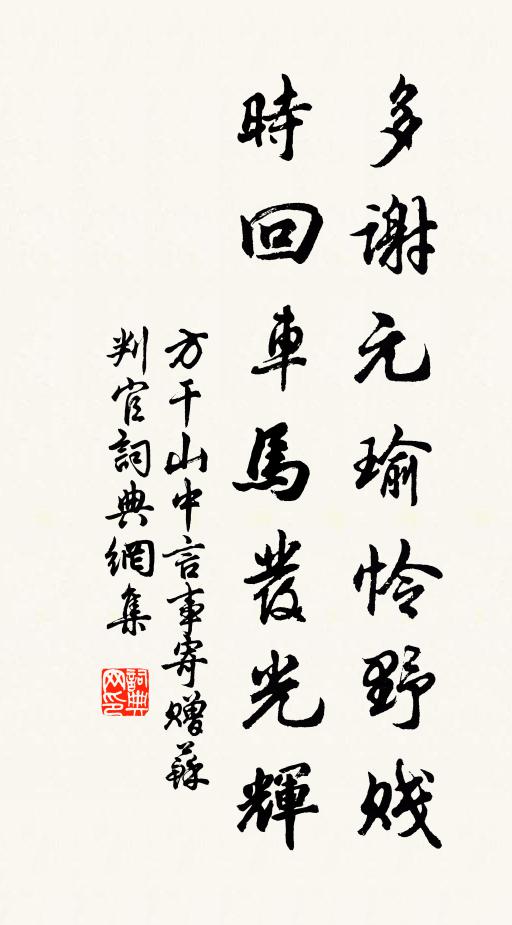 多謝元瑜怜野賤
時回車馬發光輝
方干山中言事寄贈蘇
判官詞典網集
詞典網印